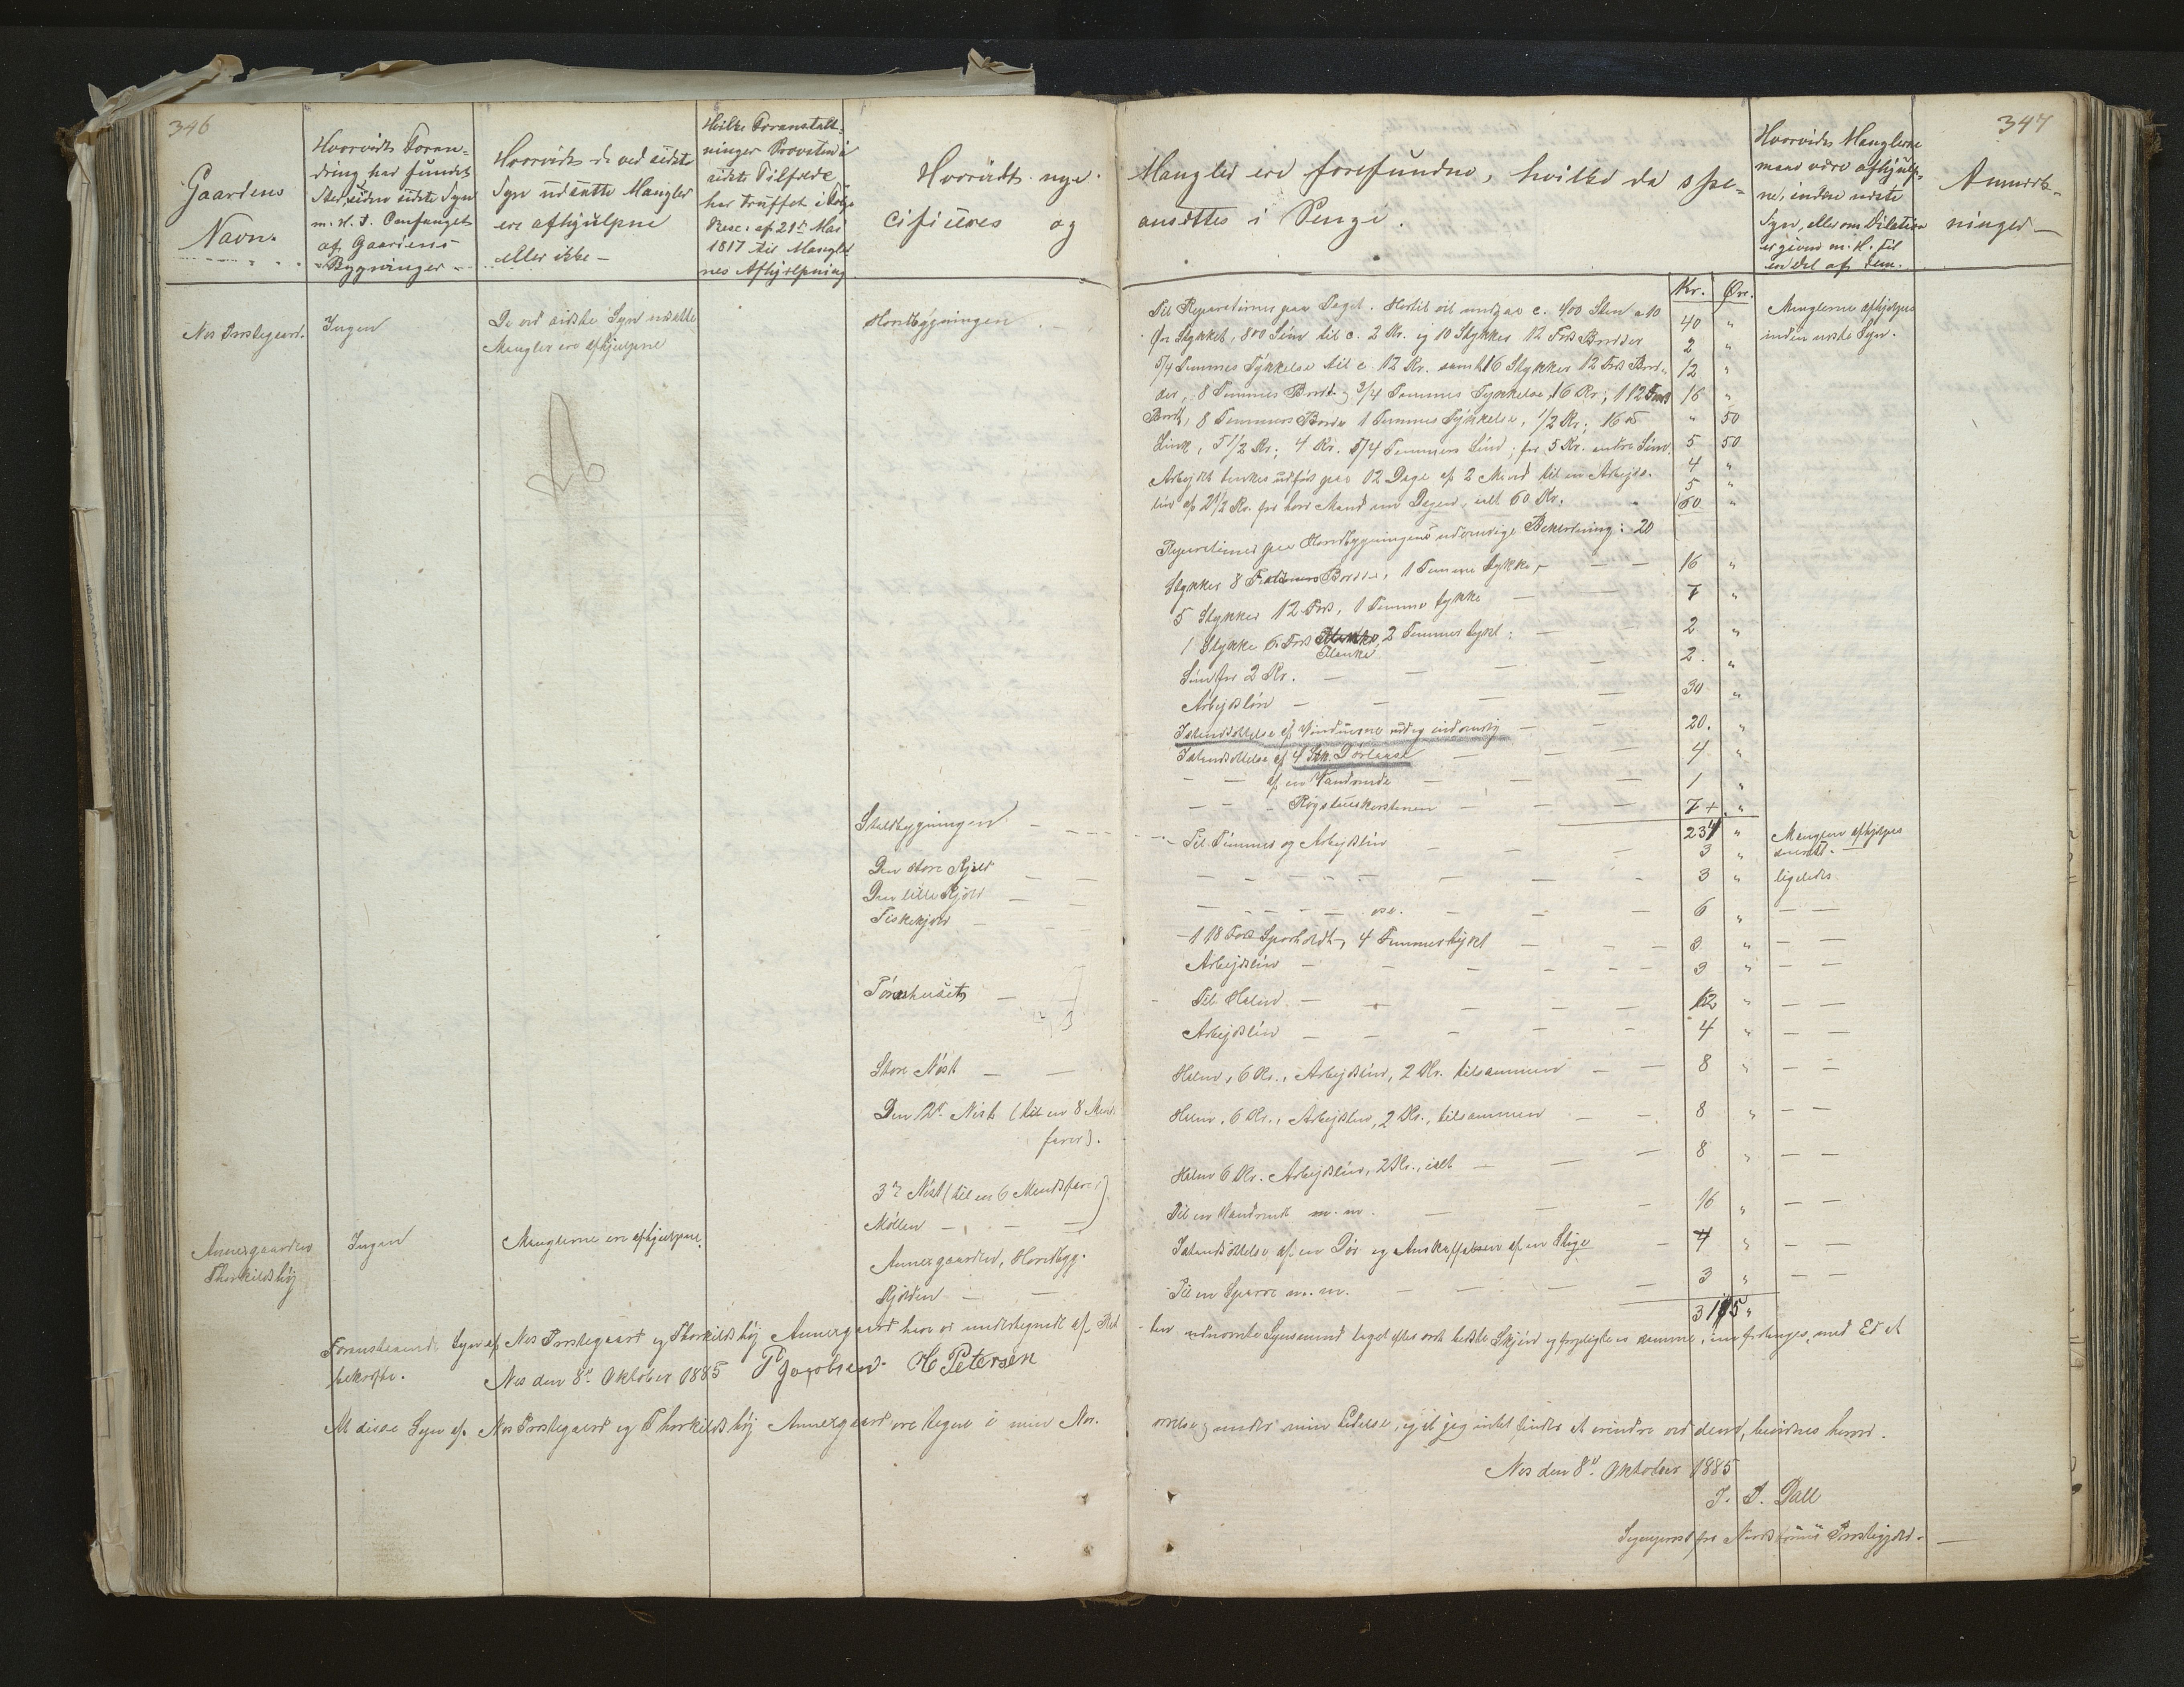 346
Gaardens
Navn.
Hvorvidt Foran-
dring har fundet
Sted, siden sidste Syn
m. H. t. Omfanget
af Gaardens
Bygninger
Hvorvidt de ved sidste
Syn udsatte Mangler
ere afhjulpne
eller ikke -
Hvilke Foranstalt-
ninger Provsten i
sidste Tilfælde
har truffet i Følge
Resc. af 21de Mai
1817 til Mangler-
nes Afhjælpning
Hvorvidt nye
cificeres og
Nes Præstegaard.
Ingen
De ved sidste Syn udsatte
Mangler ere afhjulpne
Hovedbygningen
Staldbygningen
Den store Hjeld
Den lille Hjeld
Fiskehjeld
Store Nøst
Den 2den Nøst (til en 8 Mands
farer).
3die Nøst (til en 6 Mandsfarer)
Møllen
Annexgaarden
Thorkildshøj
Ingen
Manglerne ere afhjulpne.
Annexgaarden, Hovedbyg.
Hjelden
Foranstaaende Syn af Nes Præstegaard og Thorkildshøj Annexgaard have vi undertegnede af Ret
bekræfte.
Nes den 8de Oktober 1885 P Jacobsen. H Petersen
At disse Syn af Nes Præstegaard og Thorkildshøj Annexgaard ere tagne i min Nær-
347
Mangler ere forefundne, hvilke da spe-
ansættes i Penge.
Hvorvidt Manglerne
maae være afhjulp-
ne, inden næste
Syn, eller om Dilation
er given m. H. til
en Del af dem.
Anmærk-
ninger
Kr. Ør.
Til Reparationer paa Taget. Hertil vil medgaa c. 400 Sten a 10
Ør Stykket, 800 Søm til c. 2 Kr. og 10 Stykker 12 Fods Brædder 40 "
5/4 Tommes Tykkelse til c. 12 Kr. samt 16 Stykker 12 Fods Bræd- 2 "
der, 8 Tommers Bredde, 3/4 Tommes Tykkelse, 16 Kr; 1 12 Fods 12 "
Bræt, 8 Tommers Bredde 1 Tommes Tykkelse, 1/2 Kr; 16 16 "
Zink, 5 1/2 Kr; 4 Kr. 5/4 Tommers Søm; for 5 Kr. andre Søm. " 50
5 50
Arbejdet tænkes udført paa 12 Dage af 2 Mand til en Arbejds- 4 "
løn af 2 1/2 Kr. for hver Mand om Dagen, ialt 60 Kr. 5 "
60 "
Manglerne afhjælpes
inden næste Syn.
Reparationer paa Hovedbygningens udvendige Beklædning: 20
Stykker 8 Brædder, 1 Tomme tykke, 16 "
5 Stykker 12 Fods, 1 Tomme tykke 7 "
1 Stykke 6 Fods Planke 2 Tommer tykt: 2 "
Søm for 2 Kr. 2 "
Arbejdsløn 30 "
Istandsættelse af Vinduerne ud og indvendig 20. "
Istandsættelse af 4 Stk. Dørlaase 4 "
af en Vandrende 1 "
Røgstueskorstenen 7 + "
234 "
Til Tømmer og Arbejdsløn 3 " Manglerne afhjælpes
snarest.
3 " ligeledes
6 "
1 18 Fods Spærholdt, 4 Tommer tykt 3 "
Arbejdsløn 3 "
Til Halm 12 "
Arbejdsløn 4 "
Halm, 6 Kr., Arbejdsløn, 2 Kr. tilsammen 8 "
Halm, 6 Kr., Arbejdsløn, 2 Kr., tilsammen 8 "
Halm 6 Kr. Arbejdsløn, 2 Kr., ialt 8 "
Til en Vandrende m. m. 16 "
Istandsættelse af en Dør og Anskaffelsen af en Stige 4 "
Til en Sparre m. m. 3 "
315 "
ten udnævnte Synsmænd taget efter vort bedste Skjøn og forpligte os samme, om forlanges, med Ed at
værelse, under min Ledelse, og at jeg intet finder at erindre ved dem, bevidnes herved.
Nes den 8de Oktober 1885
F. P. Dall
Sognepræst for Norderøernes Præstegjeld.